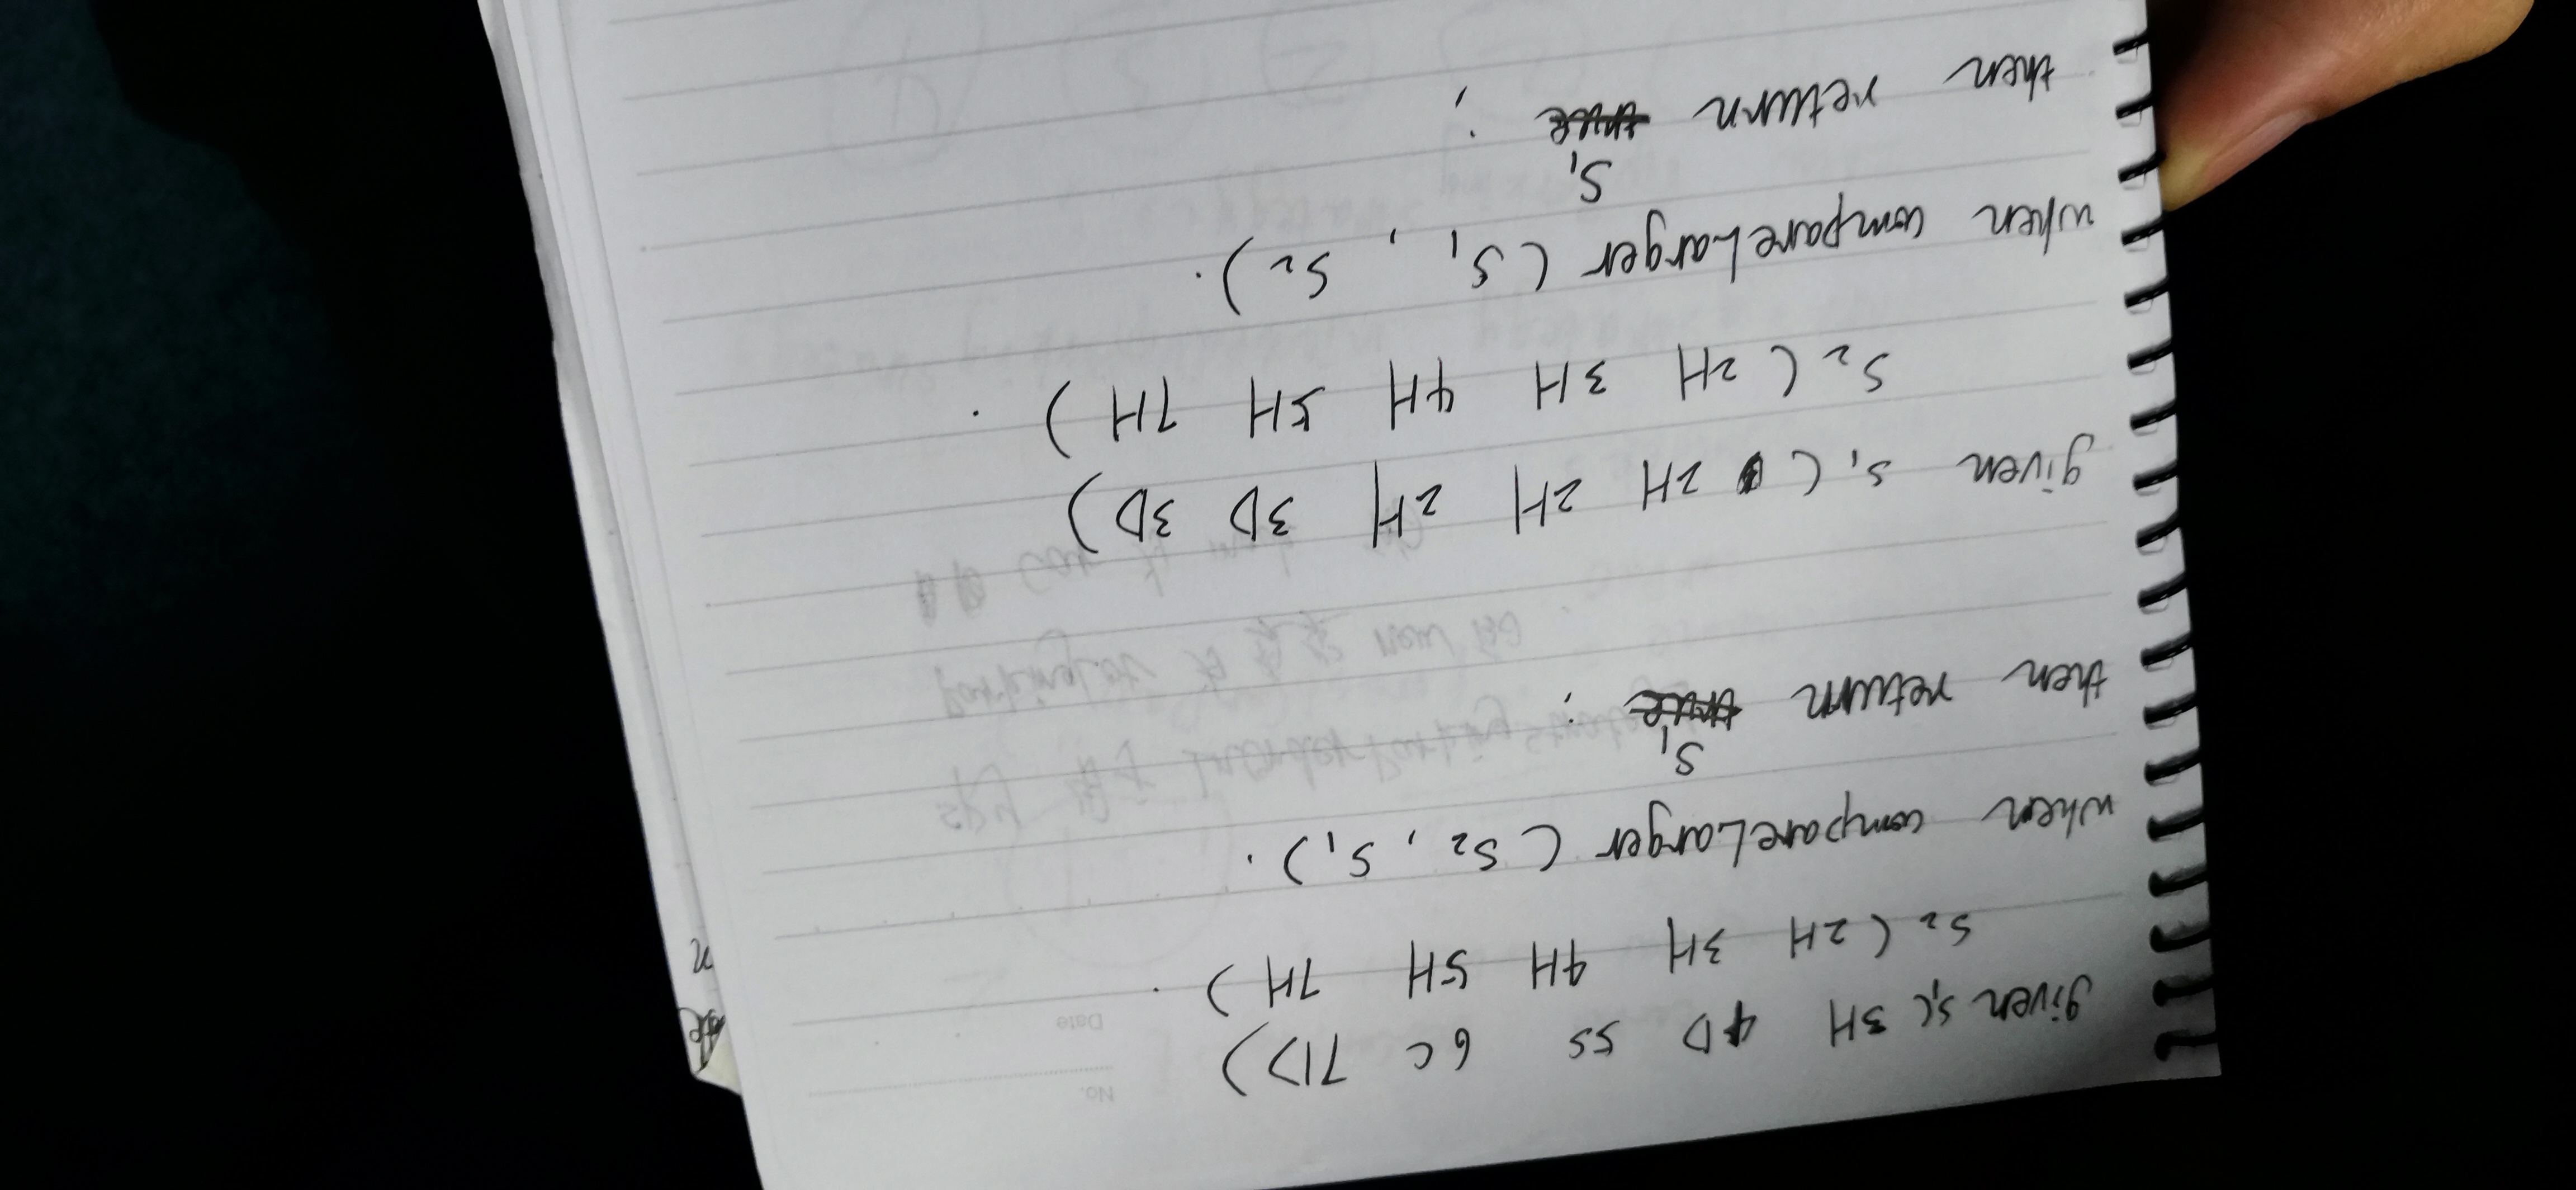 No.
Date
given S1( 3H 4D 5S 6C 7D)
S2 ( 2H 3H 4H 5H 7H ) .
when compareLarger ( S2 , S1 ) .
S1
then return true ;
given S1 ( 2H 2H 2H 3D 3D)
S2 ( 2H 3H 4H 5H 7H ) .
when compareLarger ( S1 , S2 ) .
S1
then return true ;